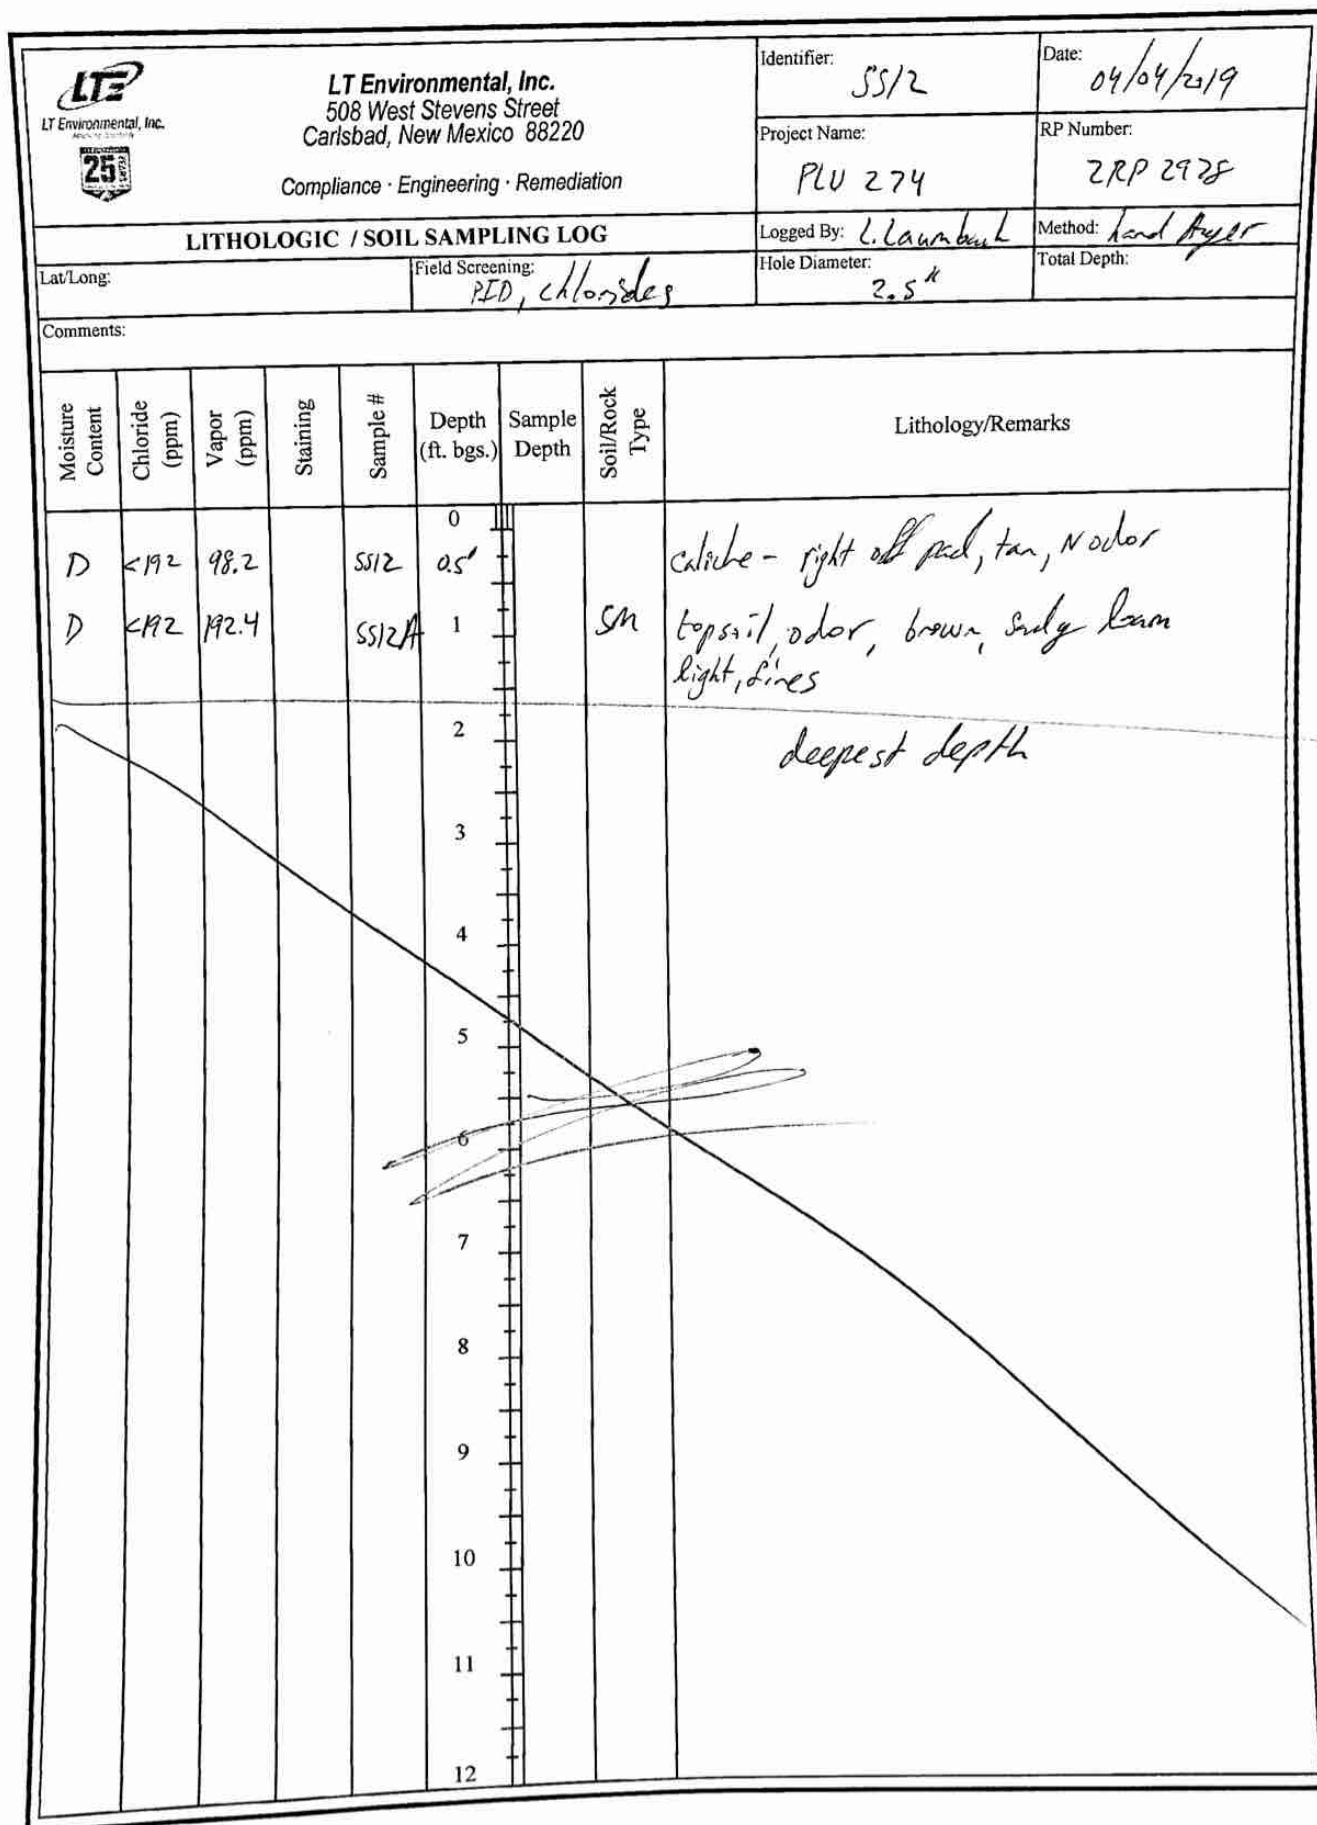 LTE
LT Environmental, Inc.
25
LT Environmental, Inc.
508 West Stevens Street
Carlsbad, New Mexico 88220
Compliance · Engineering · Remediation
Identifier: SS12
Date: 04/04/2019
Project Name: PLU 274
RP Number: 2RP 2978
LITHOLOGIC / SOIL SAMPLING LOG
Logged By: L. Laumbach
Method: hand Auger
Lat/Long:
Field Screening: PID, chlorides
Hole Diameter: 2.5"
Total Depth:
Comments:
Moisture Content
Chloride (ppm)
Vapor (ppm)
Staining
Sample #
Depth (ft. bgs.)
Sample Depth
Soil/Rock Type
Lithology/Remarks
0
D <192 98.2 SS12 0.5' caliche - right off pad, tan, N odor
D <192 192.4 SS12A 1 SM topsoil, odor, brown, sandy loam
light, fines
2
deepest depth
3
4
5
6
7
8
9
10
11
12